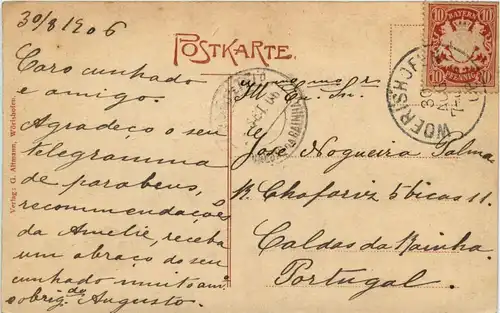 30/8 1906
POSTKARTE.
Caro cunhado
e amigo.
Agradeço o seu
telegramma
de parabens,
recommendações
da Amelie, receba
um abraço do seu
cunhado muito ami.
e obrig.do Augusto.
Illmo Exmo Snr.
José Nogueira Palma
R. Chafariz 5 bicas 11.
Caldas da Rainha.
Portugal.
BAYERN
10 10
PFENNIG
WOERISHOFEN
30
AUG
CALDAS DA RAINHA
06
Verlag: G. Altmann, Wörishofen.